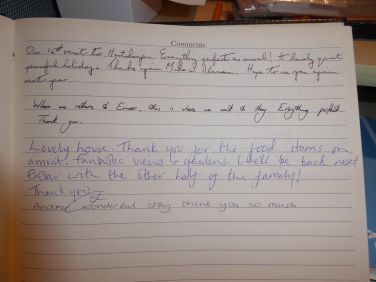 Comments
Our 16th visit to Everything perfect as usual! A lovely quiet
peaceful holiday. Thank you Hope to see you again
next year.
When we return to Exmoor, this is where we want to stay. Everything perfect
Thank you.
Lovely house. Thank you for the food items on
arrival. Fantastic views & gardens. We'll be back next
year with the other half of the family!
Thank you
Another wonderful stay thank you so much.